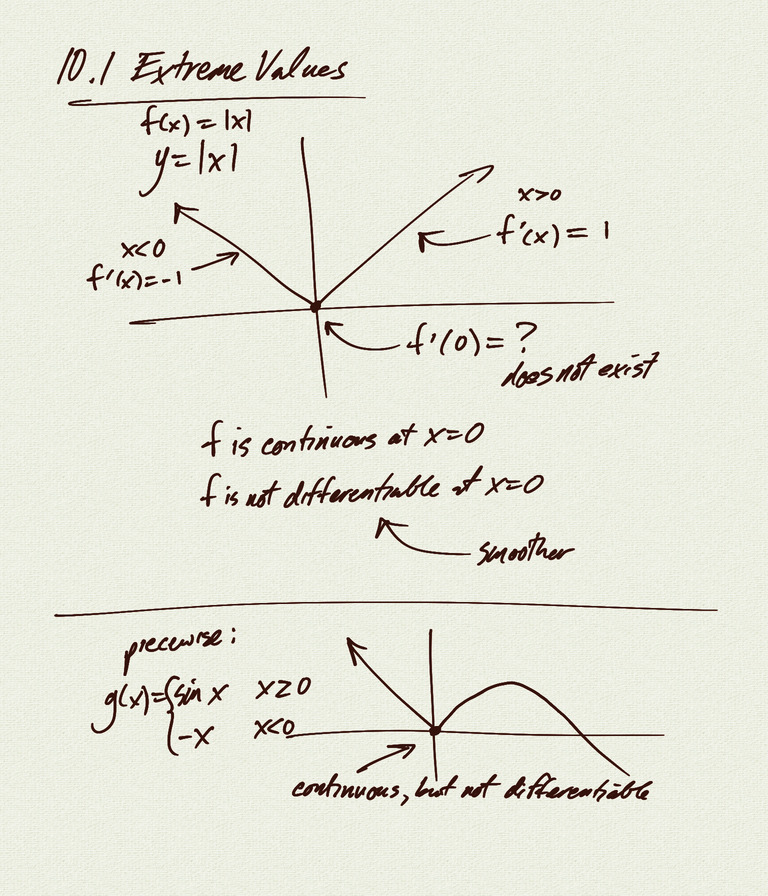 10.1 Extreme Values
f(x) = |x|
y = |x|
x>0
f'(x) = 1
x<0
f'(x)=-1
f'(0) = ?
does not exist
f is continuous at x=0
f is not differentiable at x=0
smoother
piecewise:
g(x)={sin x x≥0
{-x x<0
continuous, but not differentiable